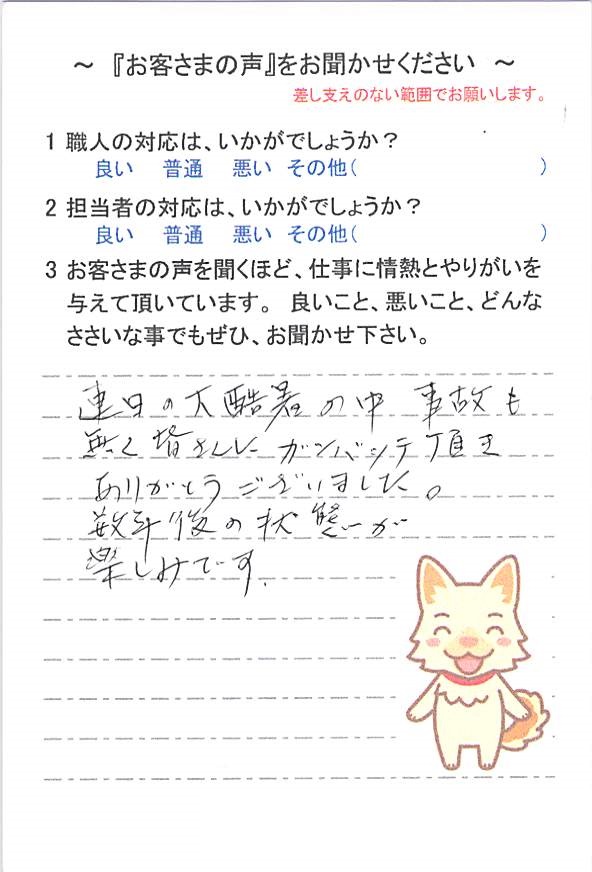 ～ 『お客さまの声』をお聞かせください ～
差し支えのない範囲でお願いします。
1 職人の対応は、いかがでしょうか？
良い 普通 悪い その他( )
2 担当者の対応は、いかがでしょうか？
良い 普通 悪い その他( )
3 お客さまの声を聞くほど、仕事に情熱とやりがいを
与えて頂いています。 良いこと、悪いこと、どんな
ささいな事でもぜひ、お聞かせ下さい。
連日の大酷暑の中 事故も
無く皆さんに ガンバッテ頂き
ありがとうございました。
数年後の状態が
楽しみです.